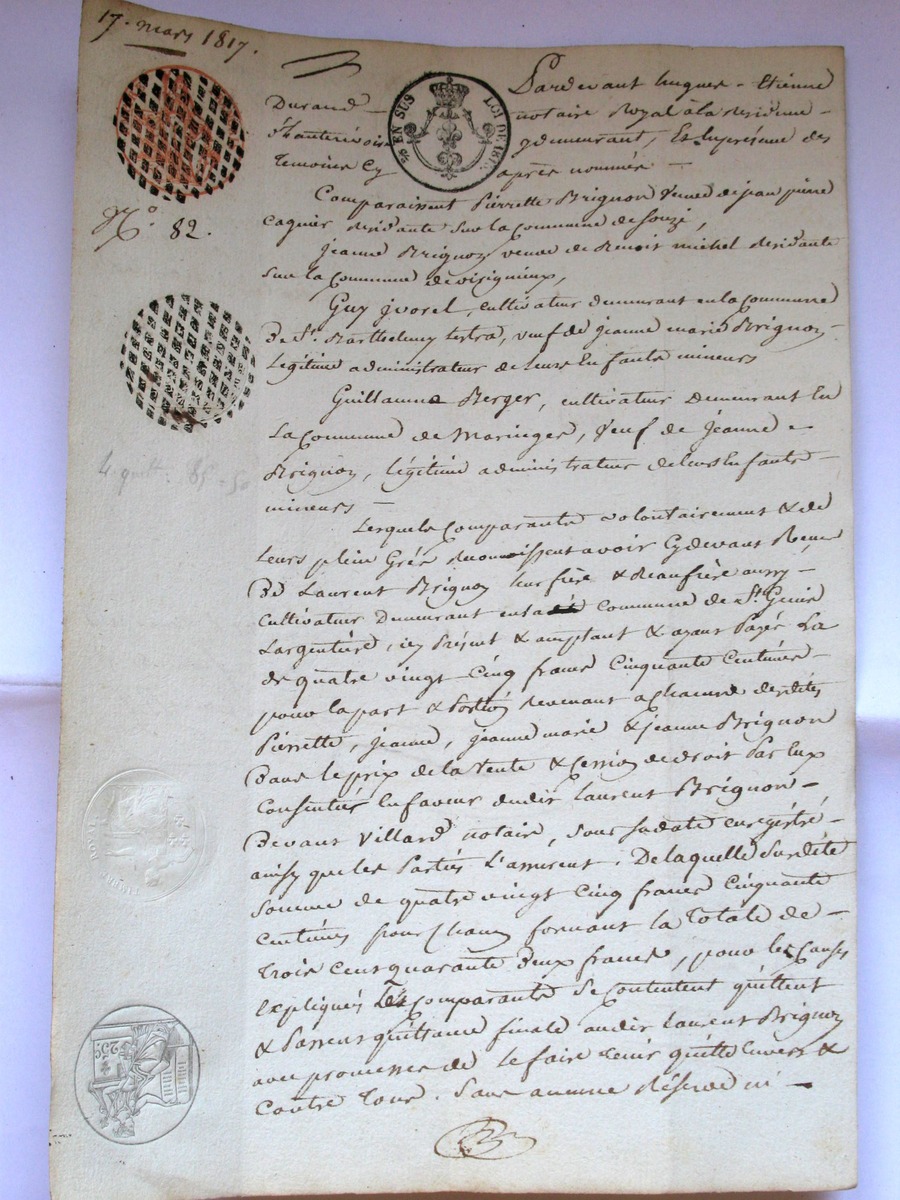 17. mars 1817.
Pardevant hugues - Etienne
Durand notaire Royal à la résidence
d'hauterivoire y demeurant, Et En présence des
temoins Cy après nommés
EN SUS LOI DE 1816
N.o 82.
Comparaissent Pierrette Brignon veuve de jean pierre
résidante sur la Commune de souzi,
jeanne Brignon veuve de Benoit michel résidante
sur la Commune de
Guy jvorel, cultivateur demeurant en la Commune
De St. Barthelemy lestra, veuf de jeanne marie Brignon
Légitime administrateur de leurs Enfants mineurs
Guillaume Berger, cultivateur Demeurant En
La Commune de Maringes, veuf de Jeanne
Brignon, légitime administrateur de leurs Enfants
mineurs
Lesquels Comparants volontairement & de
leurs plein Grés reconnoissent avoir Cy devant Reçu
De Laurent Brignon leur frère & Beaufrère aussy
Cultivateur Demeurant en Commune de St. Genis
Largentière, icy Présent & acceptant & ayant Payés La
de quatre vingt Cinq francs Cinquante Centimes
pour la part & Portion revenant a chacune desdites
Pierrette, jeanne, jeanne marie & jeanne Brignon
Dans le prix de la vente & Cession de droit Par Eux
Consenties En faveur dudit Laurent Brignon
Devant Villard notaire, sous sa date enregistré
ainsy que les Parties L'assurent; De laquelle Susdite
Somme de quatre vingt Cinq francs Cinquante
Centimes pour chacun formant la Totale de
trois Cent quarante Deux francs, pour les Causes
Expliqués Les Comparants Se Contentent quittent
& Passent quittance finale audit Laurent Brignon
avec promesses de le faire tenir quitte Envers &
Contre Tous. Sans aucune Réserve ni
25c